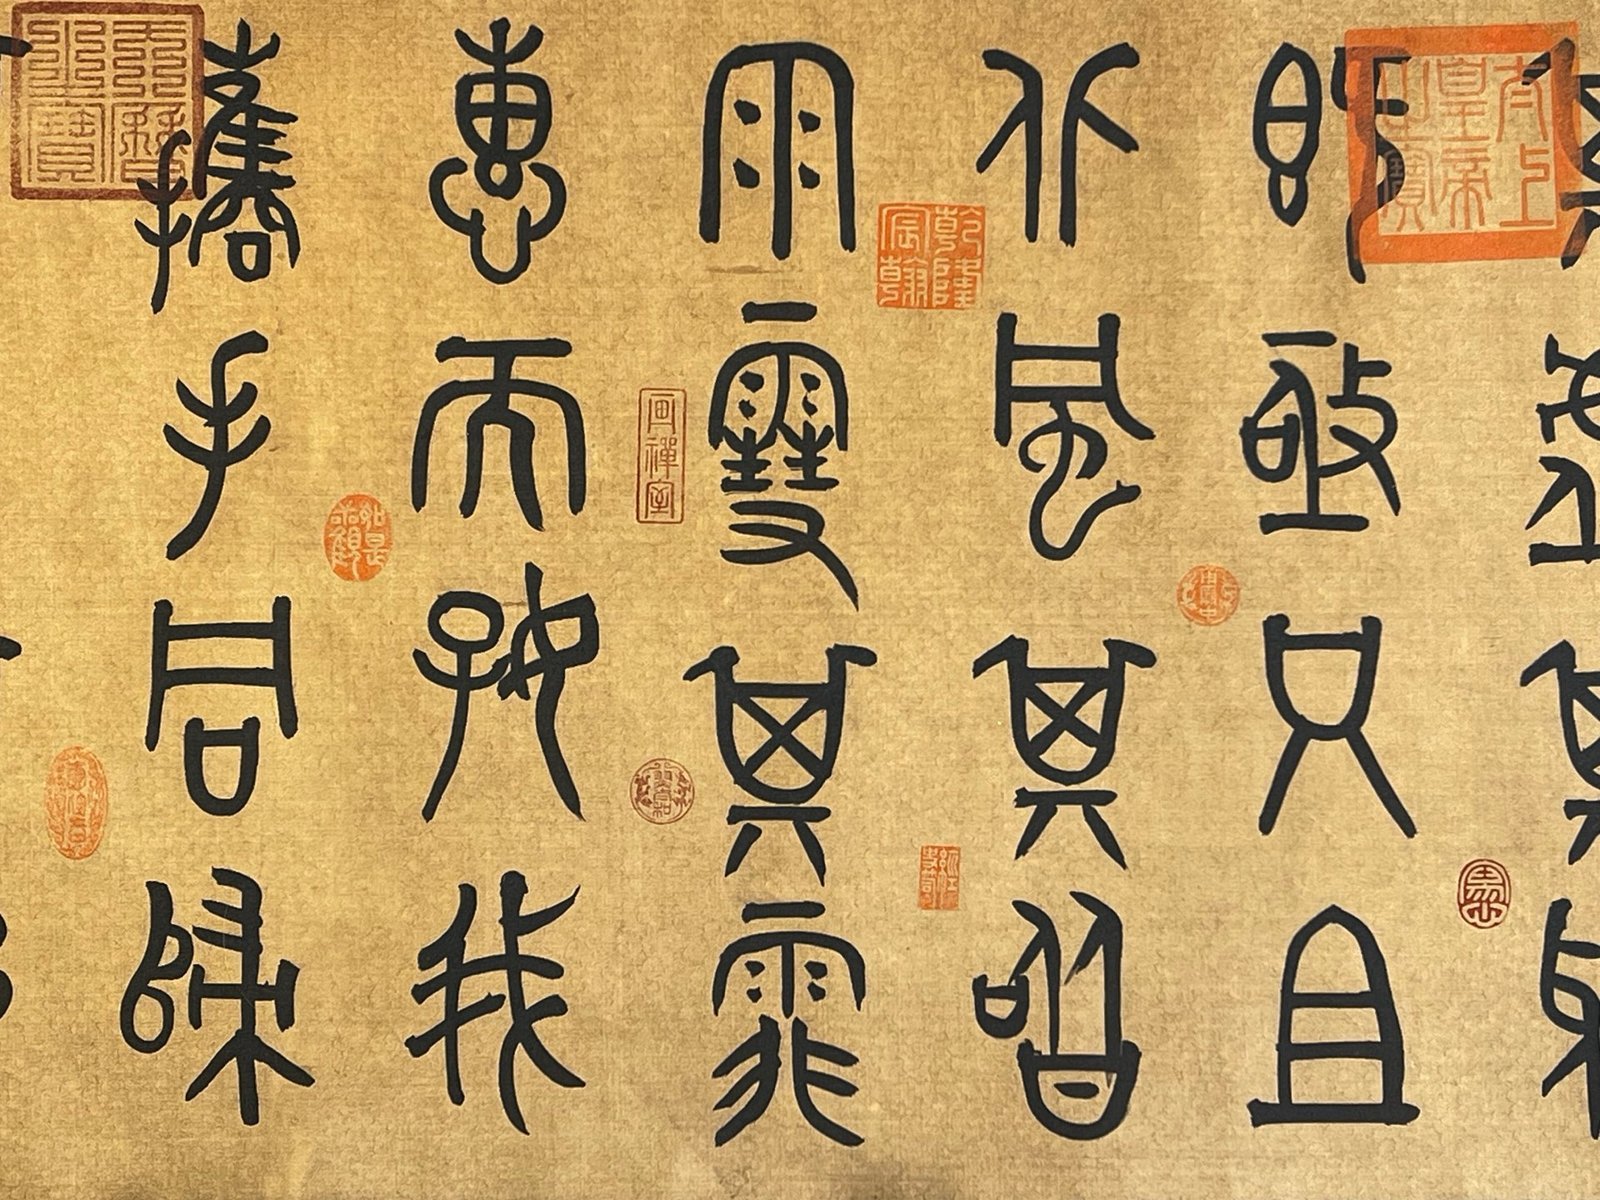 其虛其邪
既亟只且
北風其喈
雨雪其霏
惠而好我
攜手同歸
太上皇帝之寶
乾隆宸翰
画禪室
如是觀